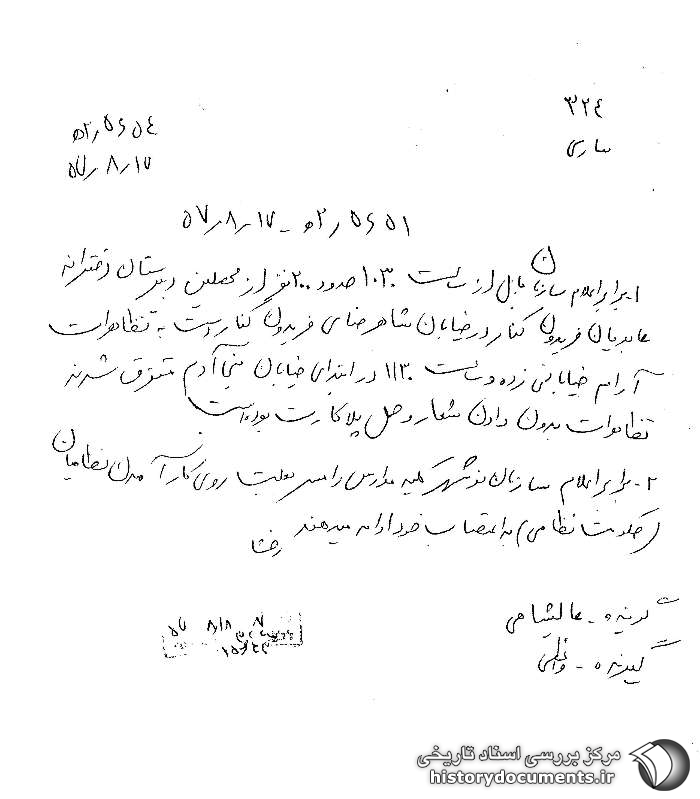 ۳۲٤
ساری
۵۶۵٤ر۲ه
۱۷ر۸ر۵۷
۵۶۵۱ر۲ه - ۱۷ر۸ر۵۷
۱- برابر اعلام سازمان بابل از ساعت ۱۰۳۰ حدود ۲۰۰ نفر از محصلین دبیرستان دخترانه
عابدیان فریدون کنار در خیابان شاهرضای فریدون کنار دست به تظاهرات
آرام خیابانی زده و ساعت ۱۱۳۰ در ابتدای خیابان بنی آدم متفرق شدند
تظاهرات بدون دادن شعار و حمل پلاکارت بوده است
۲- برابر اعلام سازمان نوشهر کلیه مدارس رامسر بعلت روی کار آمدن نظامیان
(حکومت نظامی) به اعتصاب خود ادامه میدهند
گوینده - عالیشاهی
گیرنده - واعظی
۵۷ ۸/۱۸
مرکز بررسی اسناد تاریخی
historydocuments.ir